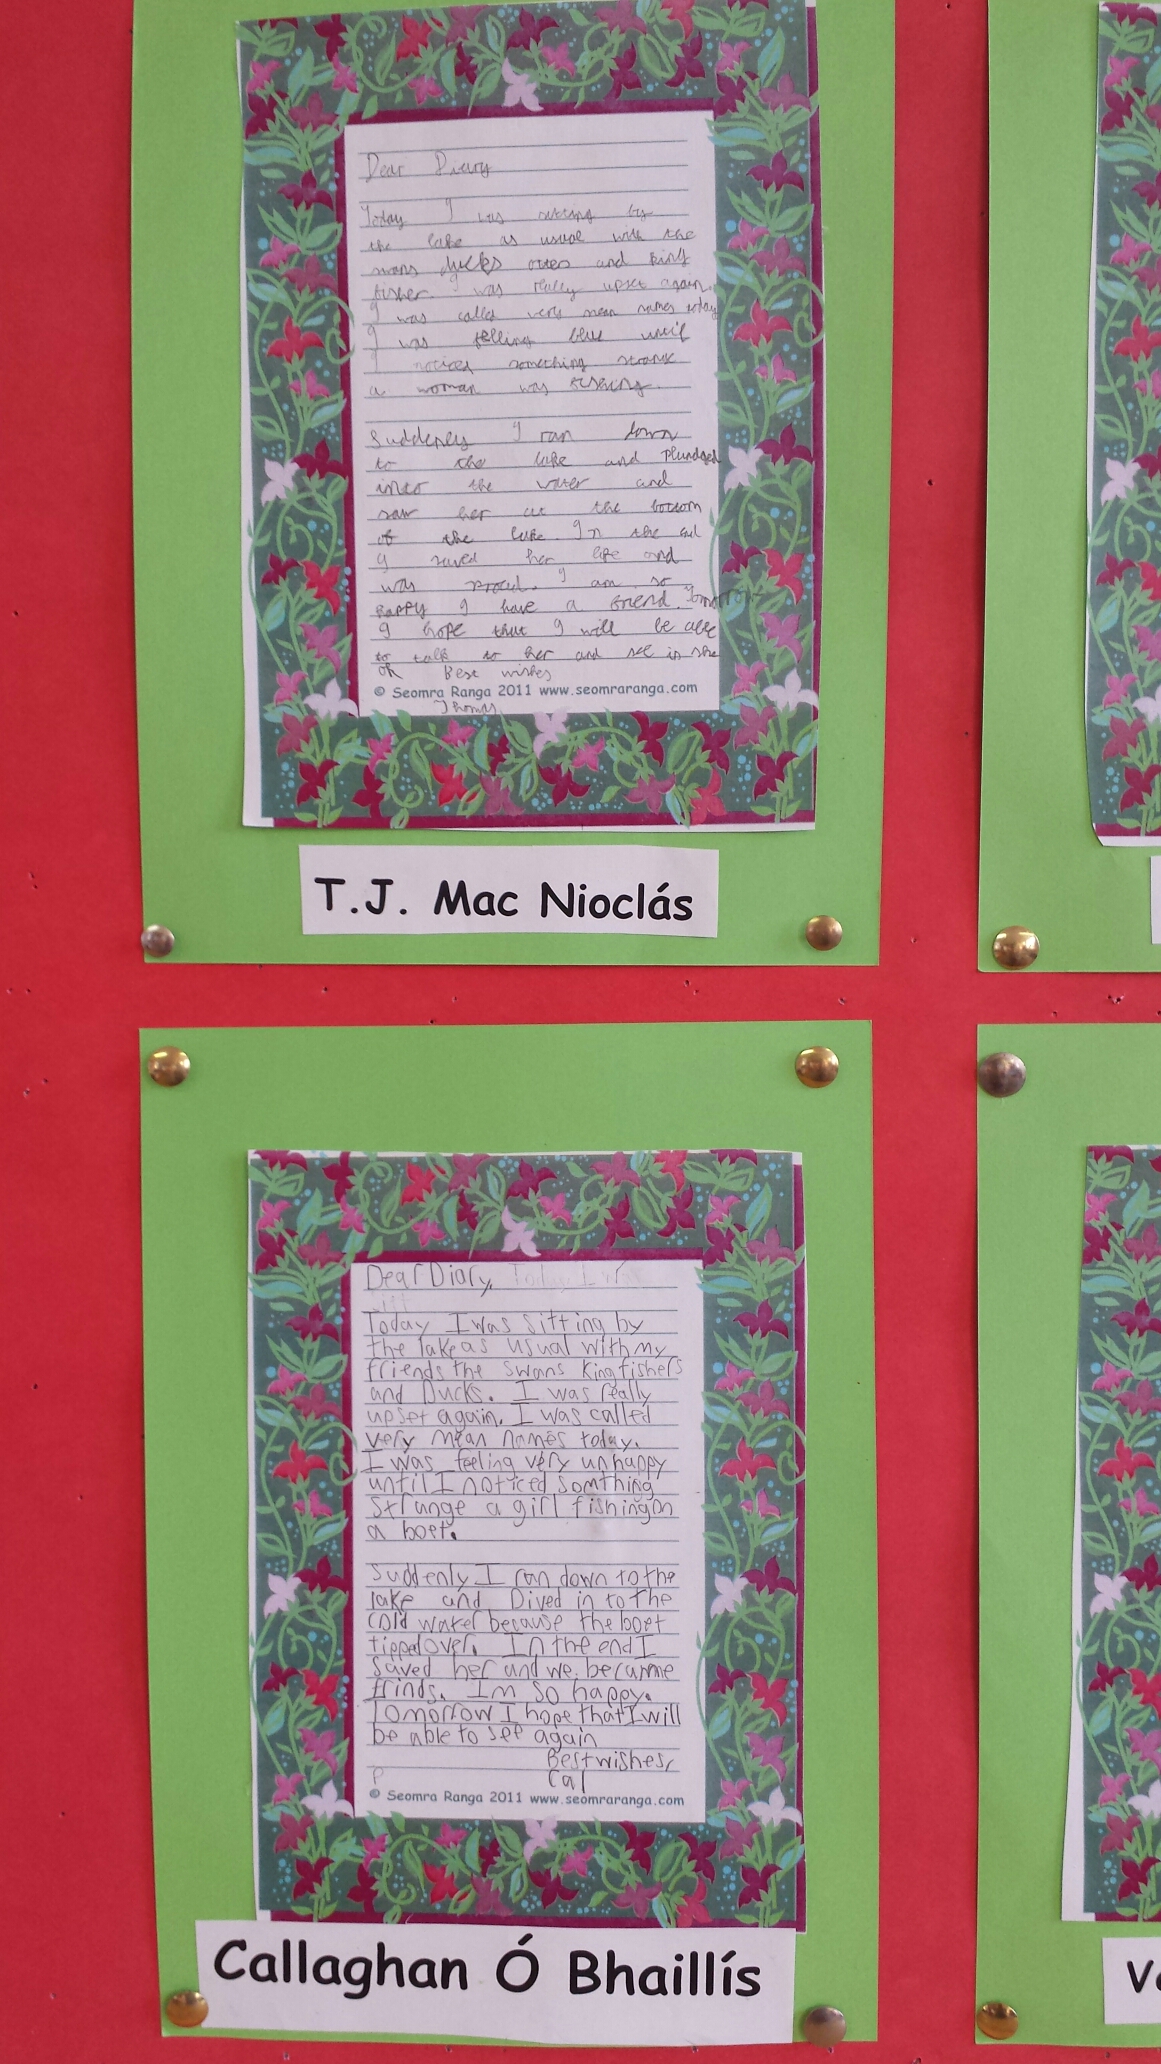 Dear Diary
Today I was sitting by
the lake as usual with the
swans ducks otters and king
fisher. I was really upset again.
I was called very mean names today
I was felling blue until
I noticed something
a woman was fishing.
Suddenly I ran down
to the lake and plundged
into the water and
saw her at the bottom
of the lake. In the end
I saved her life and
was proud. I am so
happy I have a friend. Tomorrow
I hope that I will be able
to talk to her and see is she
ok Best wishes
© Seomra Ranga 2011 www.seomraranga.com
Thomas
T.J. Mac Nioclás
Dear Diary,
Today I was sitting by
the lake as usual with my
friends the swans kingfishers
and Ducks. I was really
upset again. I was called
very mean names today.
I was feeling very unhappy
until I noticed somthing
strange a girl fishing on
a boet.
Suddenly I ran down to the
lake and Dived in to the
cold water because the boet
tipped over. In the end I
saved her and we became
frinds. I'm so happy.
Tomorrow I hope that I will
be able to see again
Best wishes,
Cal
© Seomra Ranga 2011 www.seomraranga.com
Callaghan Ó Bhaillís